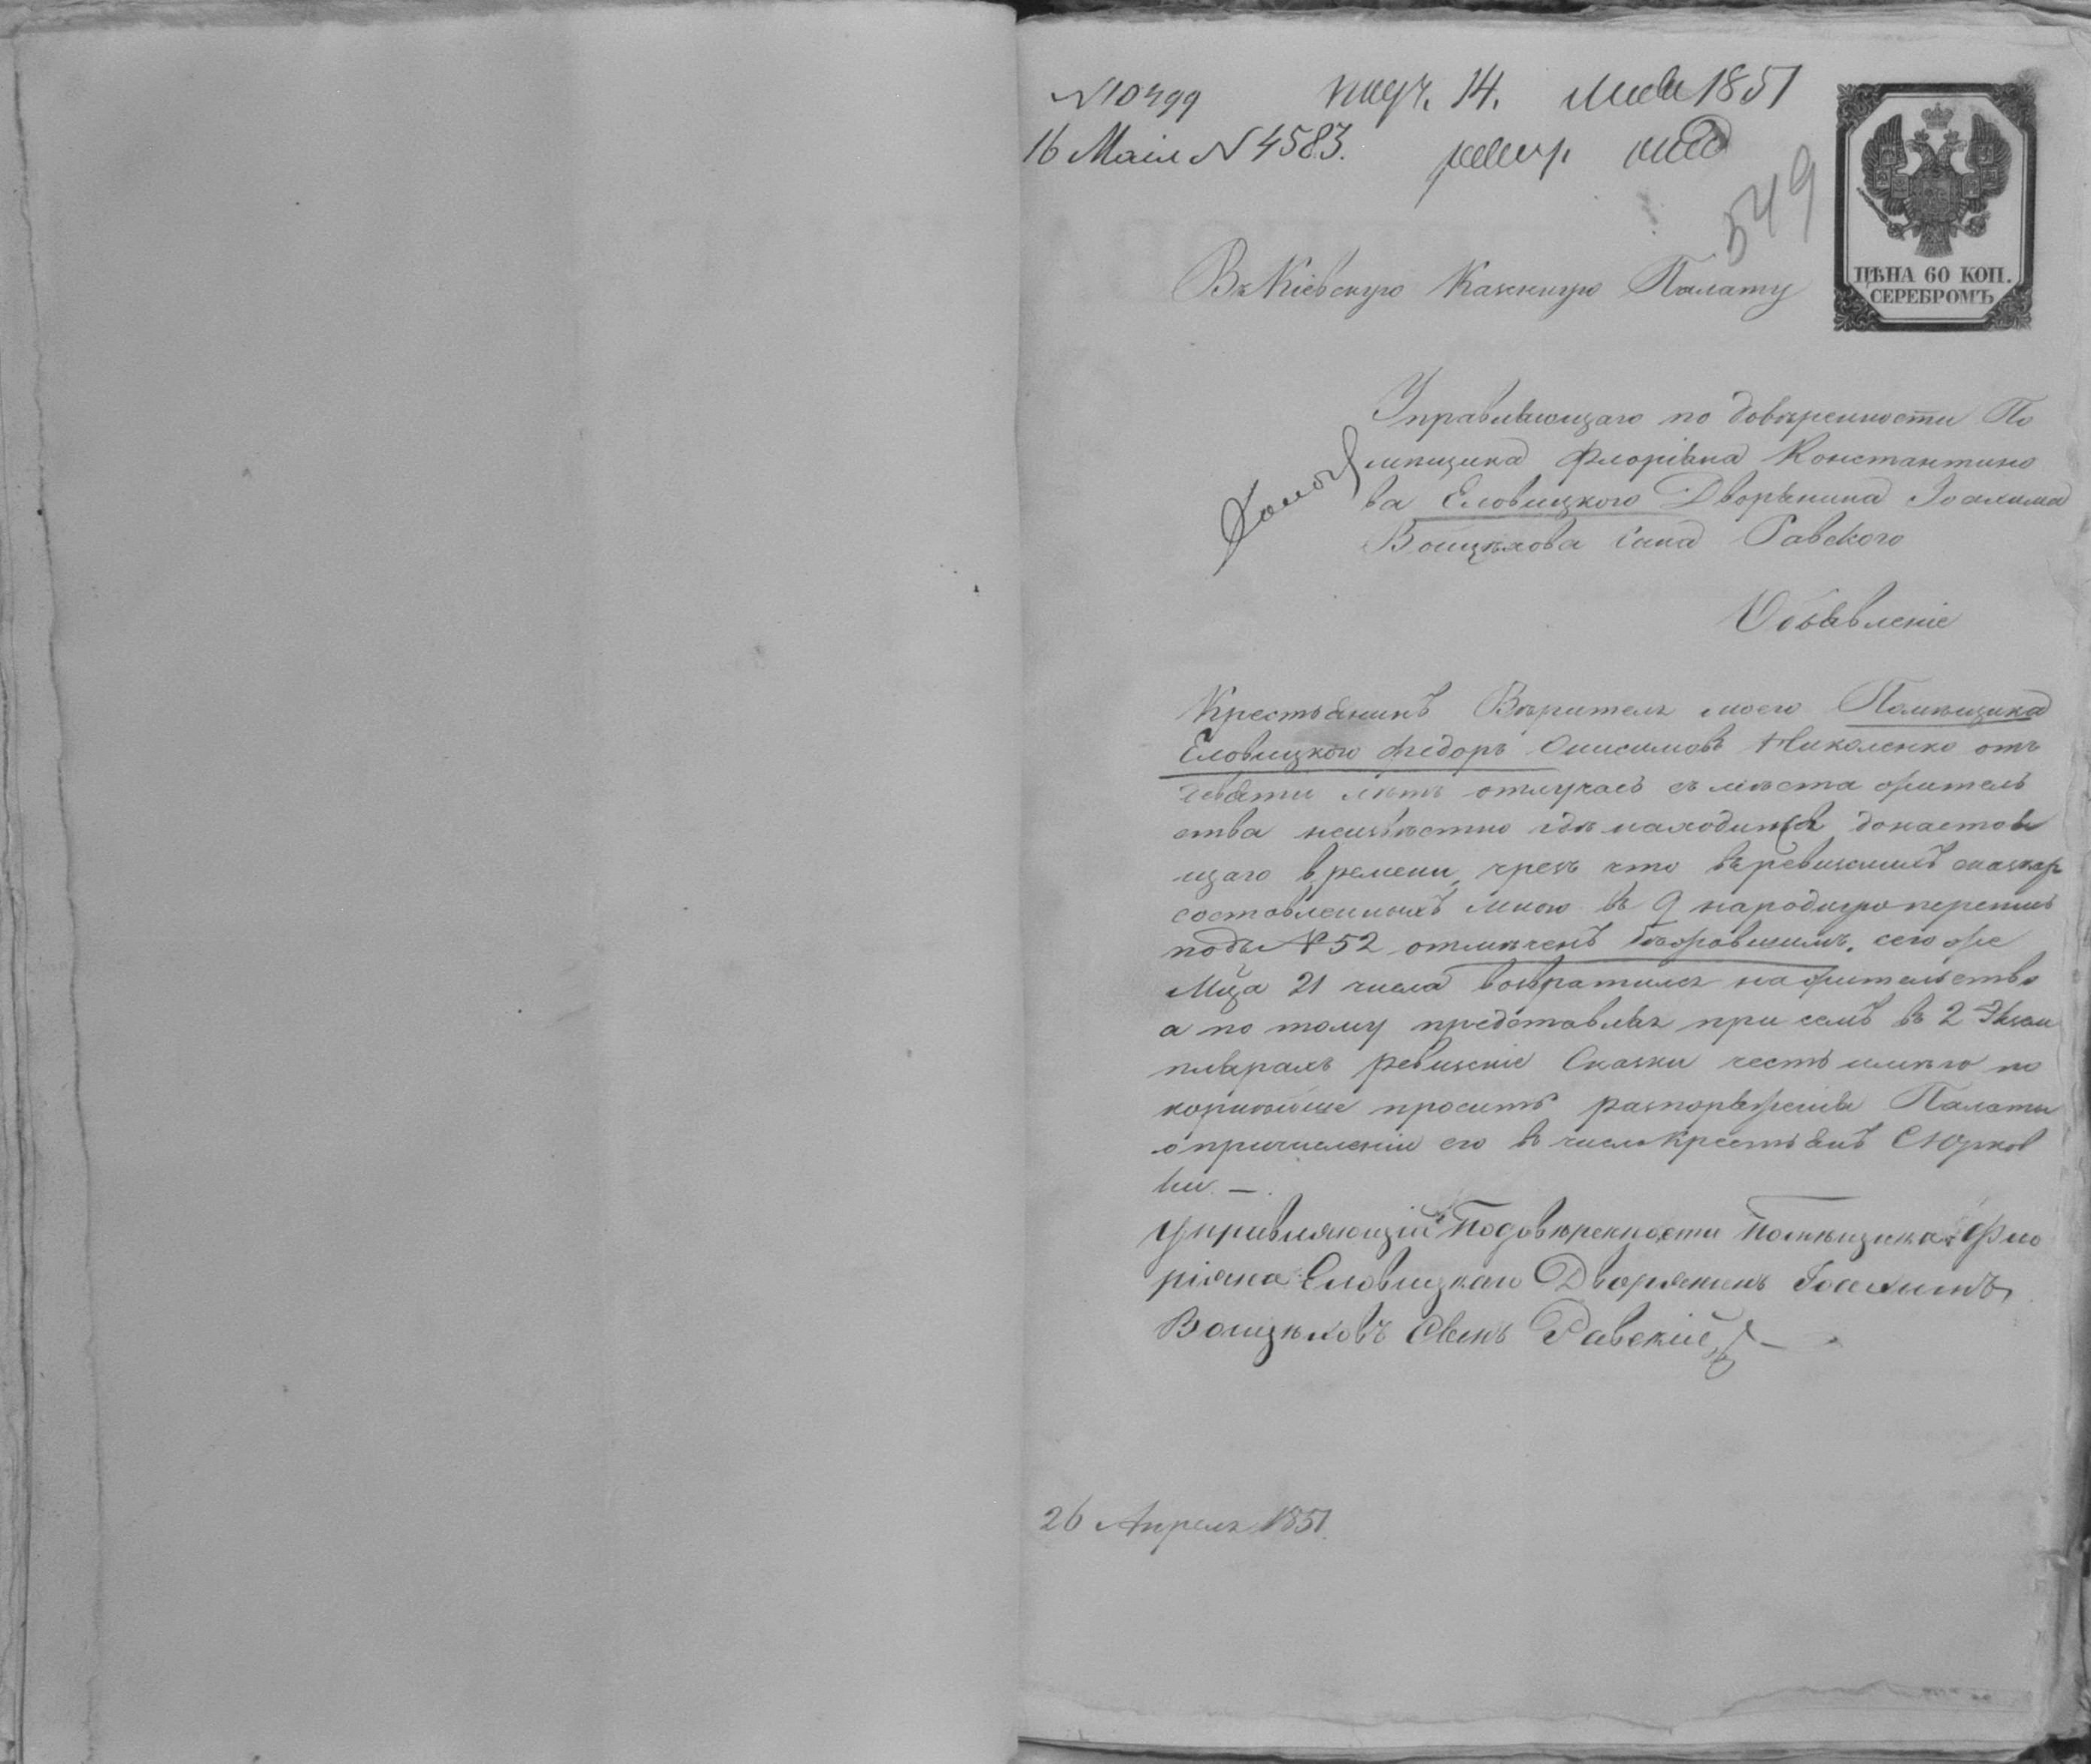 N 10499 14. 1851
16 Маія N 4583.
549
ЦѢНА 60 КОП.
СЕРЕБРОМЪ
Въ Кіевскую Казенную Палату
Управляющаго по довѣренности По
мѣщика Флоріана Константино
ва Еловицкого Дворянина Іоахима
Воицѣхова сына Равского
Объявленіе
Крестьянинъ Вѣрителя моего Помѣщика
Еловицкого Федоръ Онисимовъ Николенко отъ
девяти лѣтъ отлучась съ мѣста житель
ства неизвѣстно гдѣ находился донастоя
щаго времени, чрезъ что въ ревизскихъ сказкахъ
составленныхъ мною въ 9 народную перепись
подъ № 52 отмѣченъ бѣжавшимъ, сего же
Мца 21 числа возвратился на жительство
а по тому представляя при семъ въ 2 Экзем
плярахъ ревизскіе Сказки честь имѣю по
корнѣйше просить разпоряженія Палаты
о причисленіи его въ число крестьянъ С Юрков
ки. —
Управляющій Подовѣренности Помѣщика Фло
ріяна Еловицкаго Дворянинъ Іоахимъ
Воицѣховъ Сынъ Равскій
26 Апреля 1851.